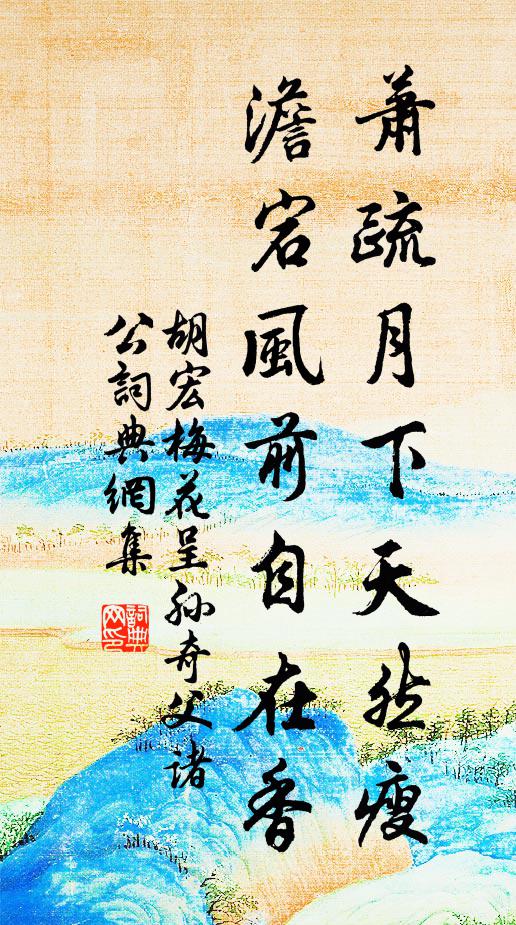 蕭疏月下天然瘦
澹宕風前自在香
胡宏梅花呈孙奇父诸
公詞典網集
詞典
网印